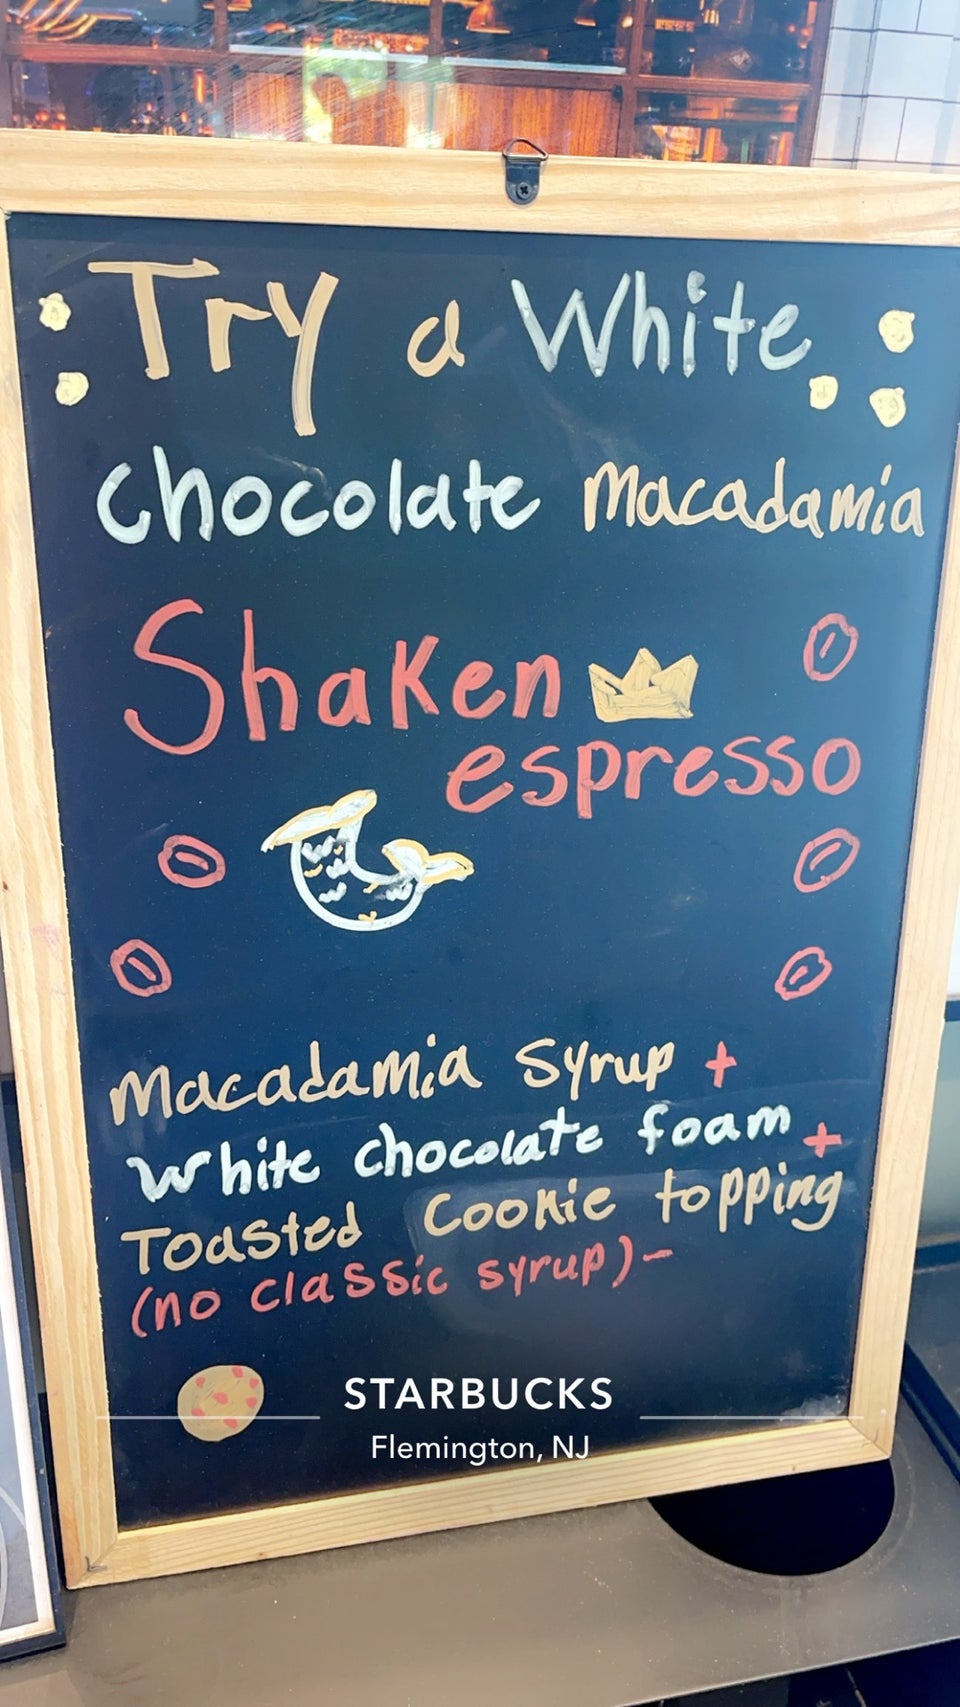 Try a White
chocolate macadamia
Shaken
espresso
macadamia syrup +
white chocolate foam +
Toasted Cookie topping
(no classic syrup) -
STARBUCKS
Flemington, NJ